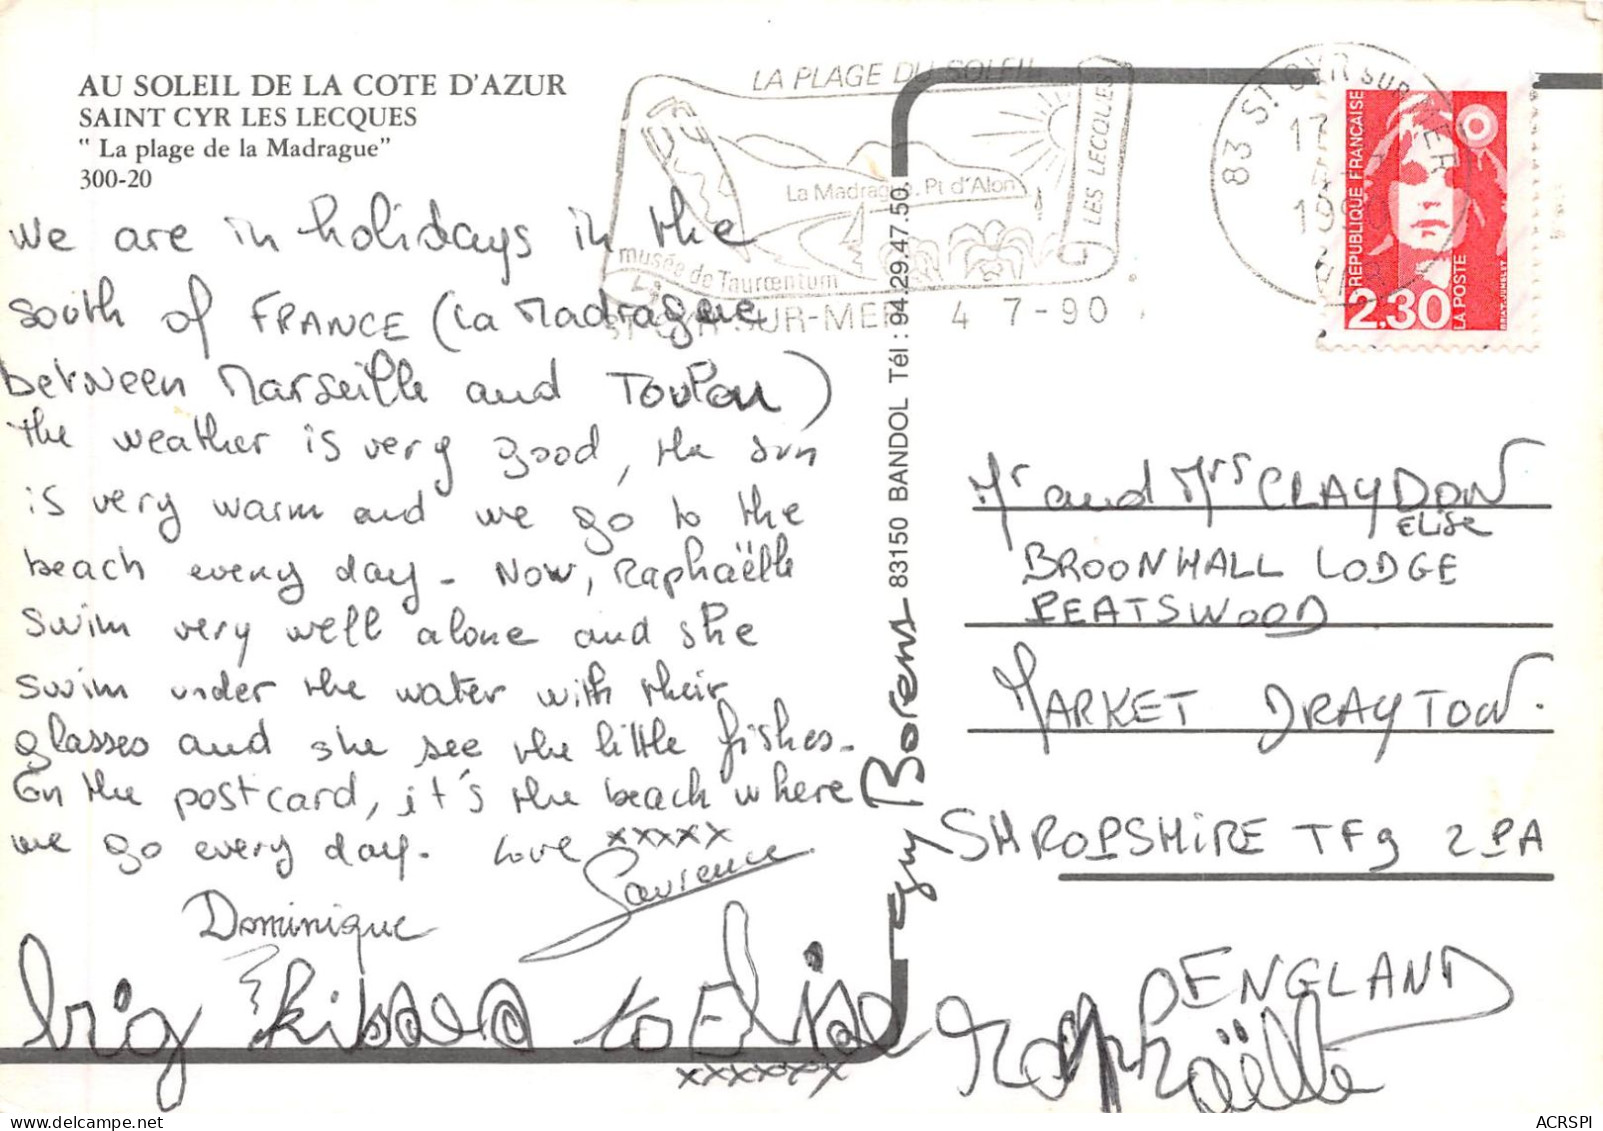 AU SOLEIL DE LA COTE D'AZUR
SAINT CYR LES LECQUES
" La plage de la Madrague"
300-20
We are in holidays in the
south of FRANCE (La Madrague
between Marseille and Toulon)
the weather is very good, the sun
is very warm and we go to the
beach every day - Now, Raphaëlle
swim very well alone and she
swim under the water with their
glasses and she see the little fishes -
On the postcard, it's the beach where
we go every day. Love xxxxx
Laurence
Dominique
big kisses to Elise
xxxxxx
Raphaëlle
LA PLAGE DU SOLEIL
La Madrague. Pt d'Alon
LES LECQUES
musée de Tauroentum
ST CYR-SUR-MER 4 7-90
83 ST CYR SUR MER
17
1990
REPUBLIQUE FRANCAISE
2.30
LA POSTE
BRIAT-JUMELET
guy Borens 83150 BANDOL Tél : 94.29.47.50.
Mr and Mrs CLAYDON
ELISE
BROOMHALL LODGE
PEATSWOOD
MARKET DRAYTON.
SHROPSHIRE TF9 2PA
ENGLAND
ACRSPI